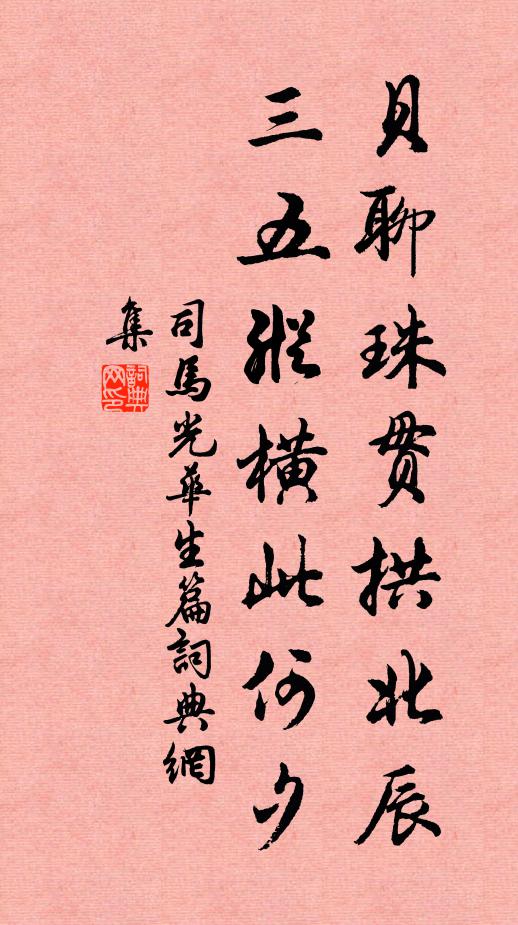 貝聊珠貫拱北辰
三五縱橫此何夕
司馬光華生篇詞典網
集
詞典網印